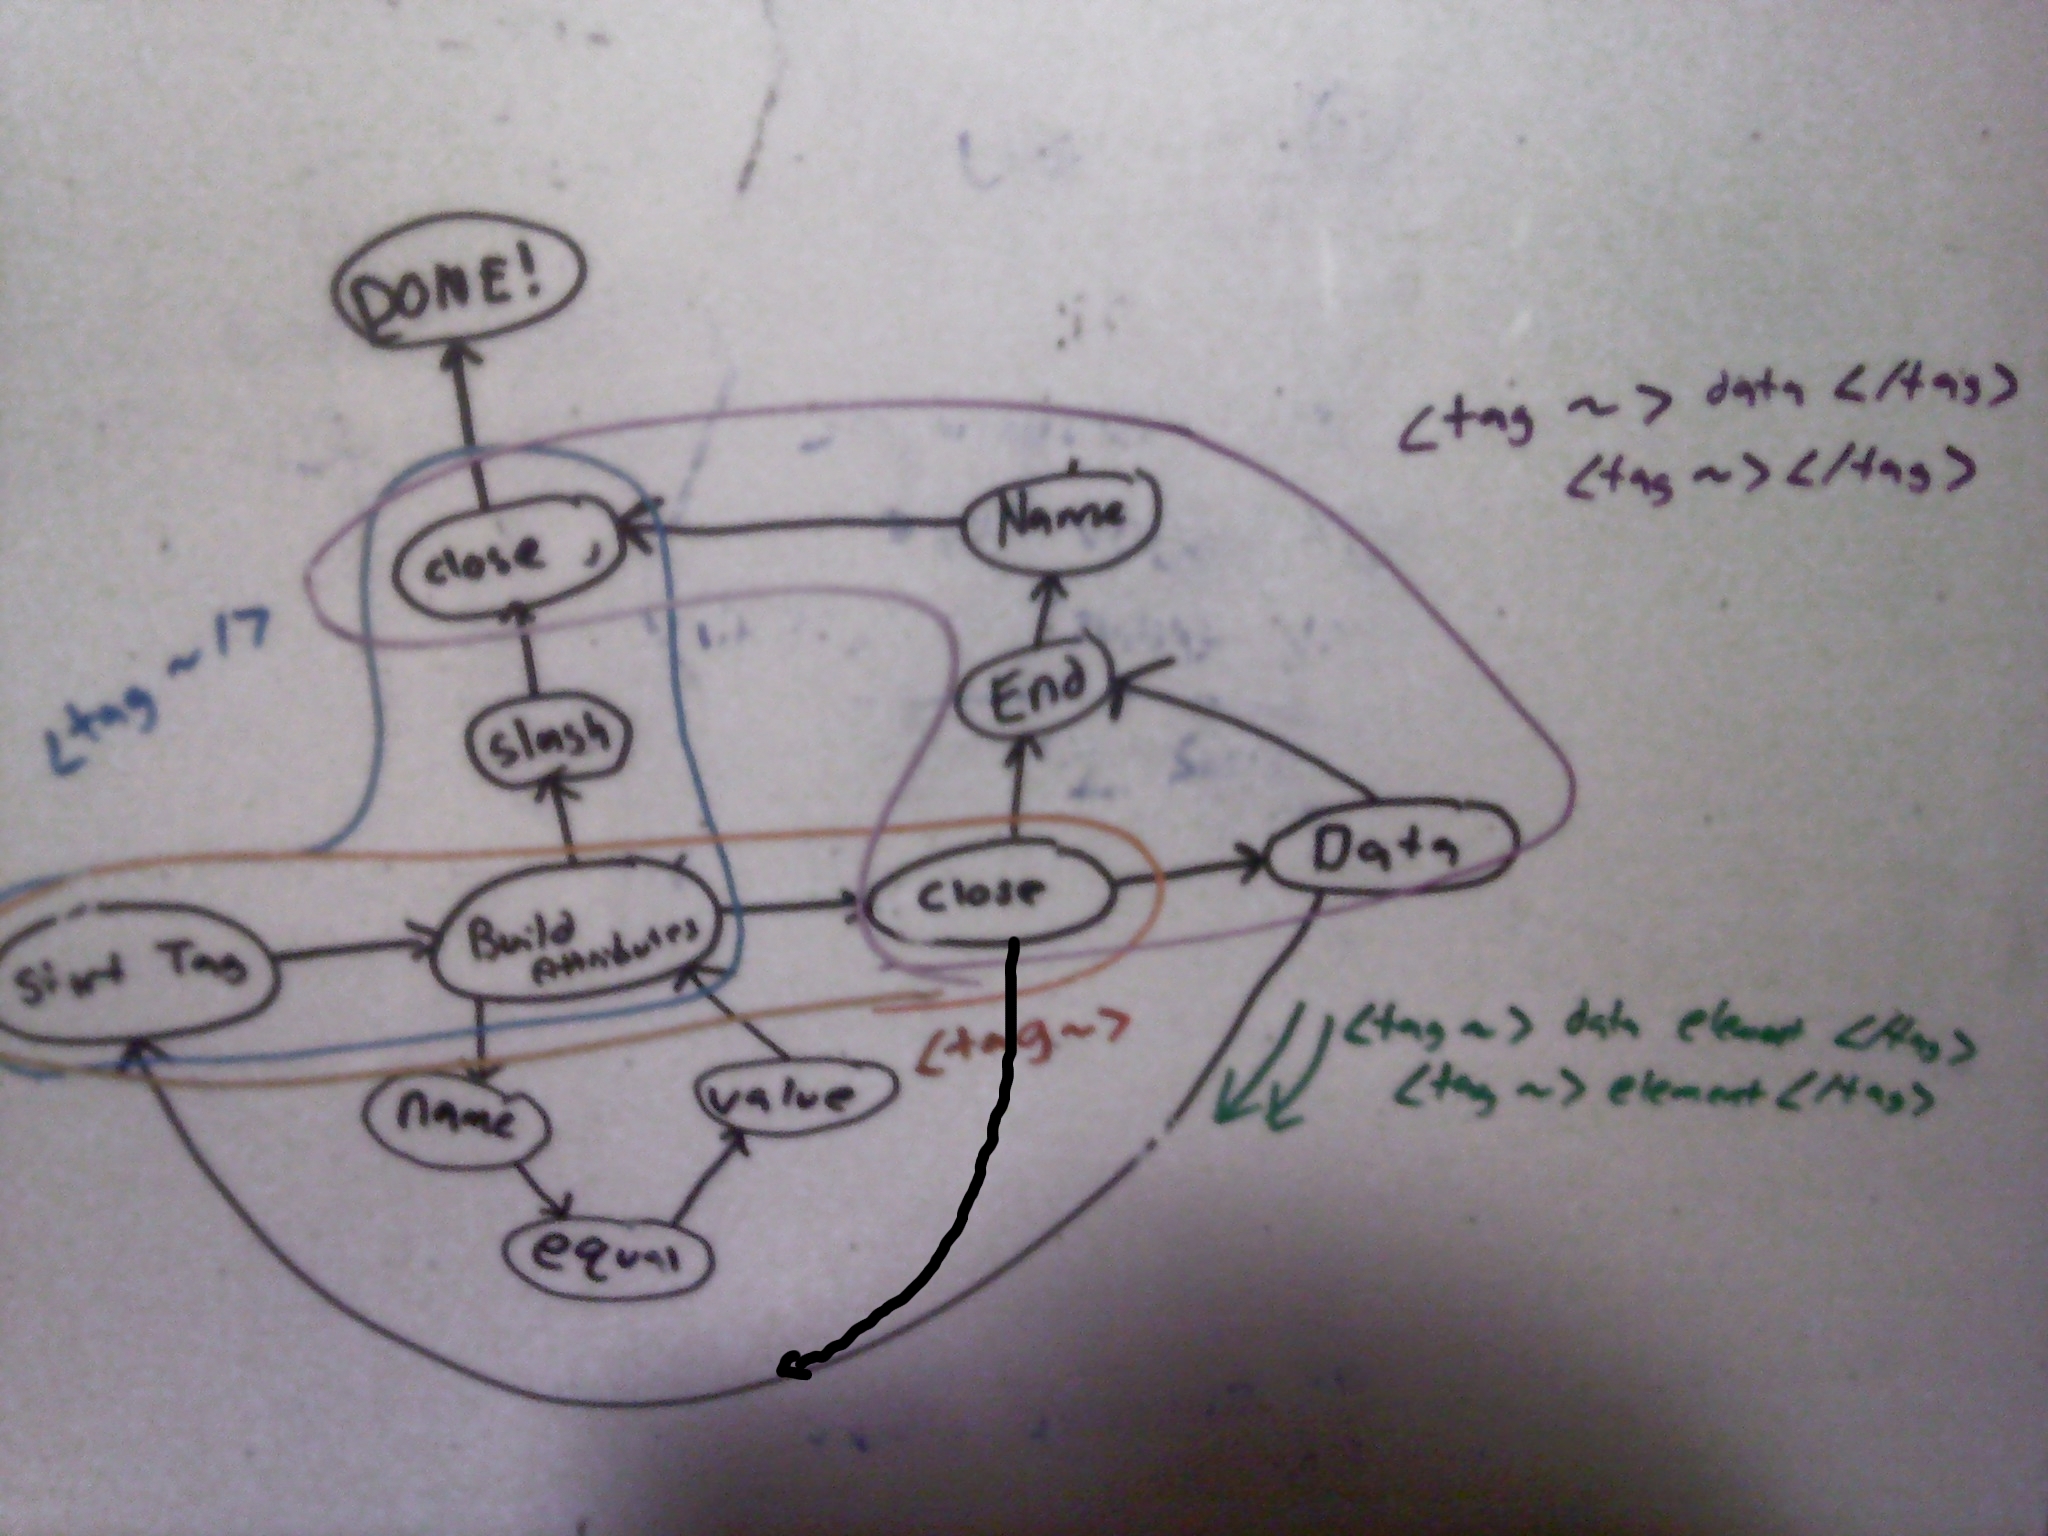 DONE!
<tag ~> data </tag>
<tag ~></tag>
Name
close
<tag ~ />
End
slash
Data
close
Build
Attributes
Start Tag
<tag ~>
<tag ~> data element </tag>
<tag ~> element </tag>
name
value
equal